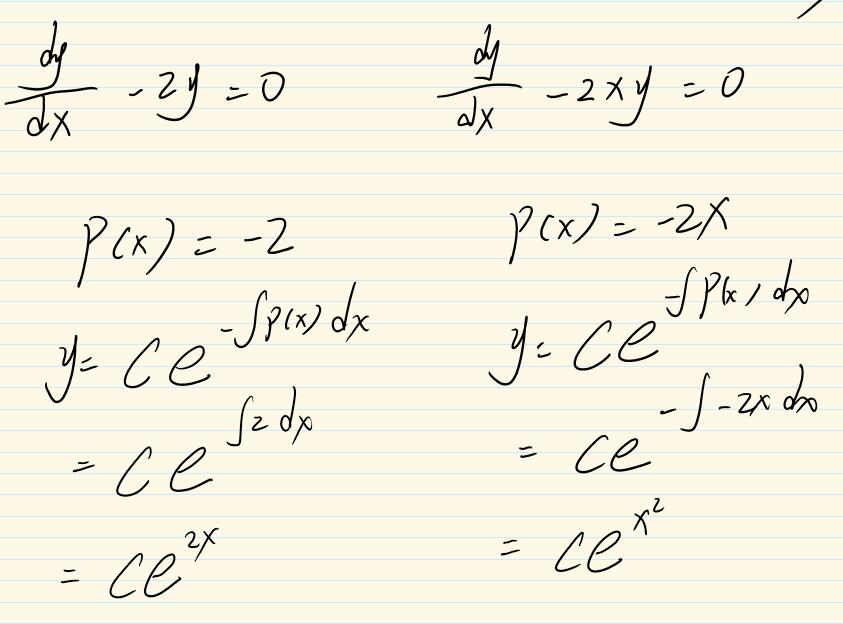 dy/dx - 2y = 0
P(x) = -2
y = Ce^{-∫P(x)dx}
= Ce^{∫2dx}
= Ce^{2x}
dy/dx - 2xy = 0
P(x) = -2x
y = Ce^{-∫P(x)dx}
= Ce^{-∫-2xdx}
= Ce^{x²}